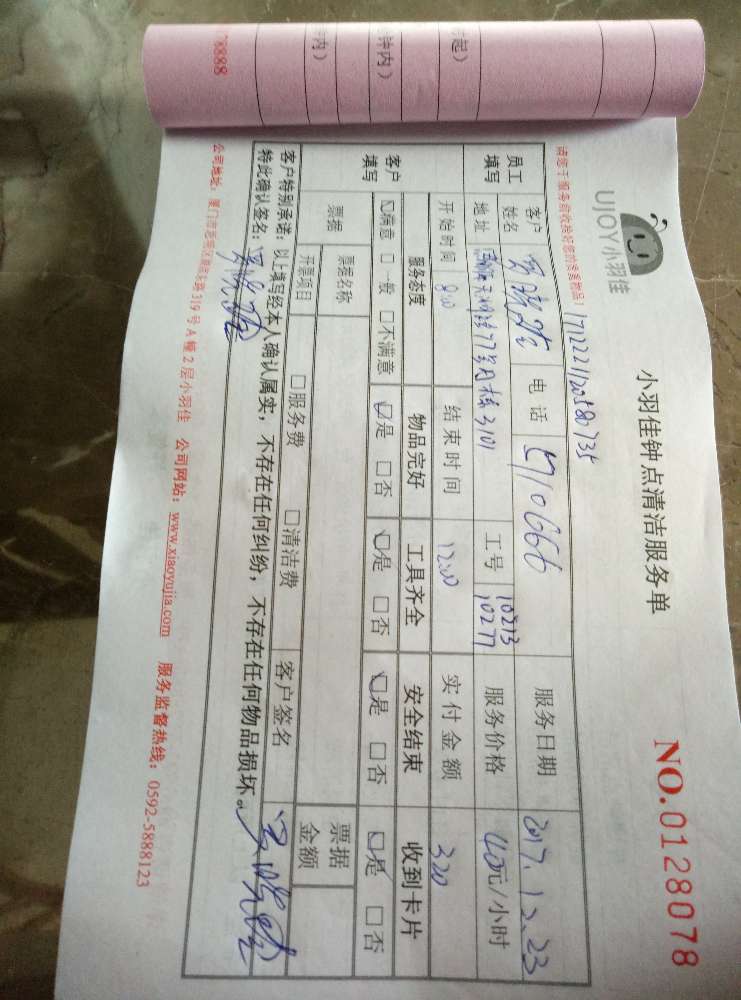 UJOY小羽佳
小羽佳钟点清洁服务单
NO.0128078
请您于服务前收拾好您的贵重物品! 1712221120580735
员工填写 客户姓名 电话 5710666 服务日期 2017.12.23
地址 77号 3101 工号 10213 10277 服务价格 40元/小时
开始时间 8:00 结束时间 12:00 实付金额 320
客户填写 服务态度 物品完好 工具齐全 安全结束 收到卡片
☑满意 □一般 □不满意 ☑是 □否 ☑是 □否 ☑是 □否 ☑是 □否
票据 票据名称 票据金额
开票项目 □服务费 □清洁费 客户签名
客户特别承诺:以上填写经本人确认属实,不存在任何纠纷,不存在任何物品损坏。
特此确认签名:
公司地址:厦门市思明区厦禾路319号A幢2层小羽佳 公司网站:www.xiaoyujia.com 服务监督热线:0592-5888123
起)
钟内)
内)
78888